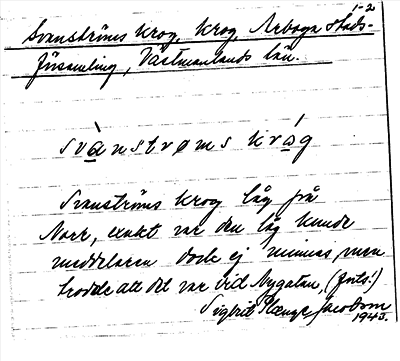 1-2
Svanströms krog, krog, Arboga stads-
församling, Västmanlands län.
svànstrøms krág
Svanströms krog låg på
Norr, exakt var den låg kunde
meddelaren dock ej minnas, men
trodde att det var vid Nygatan, (fints!)
Sigbrit Plænge Jacobson
1945.